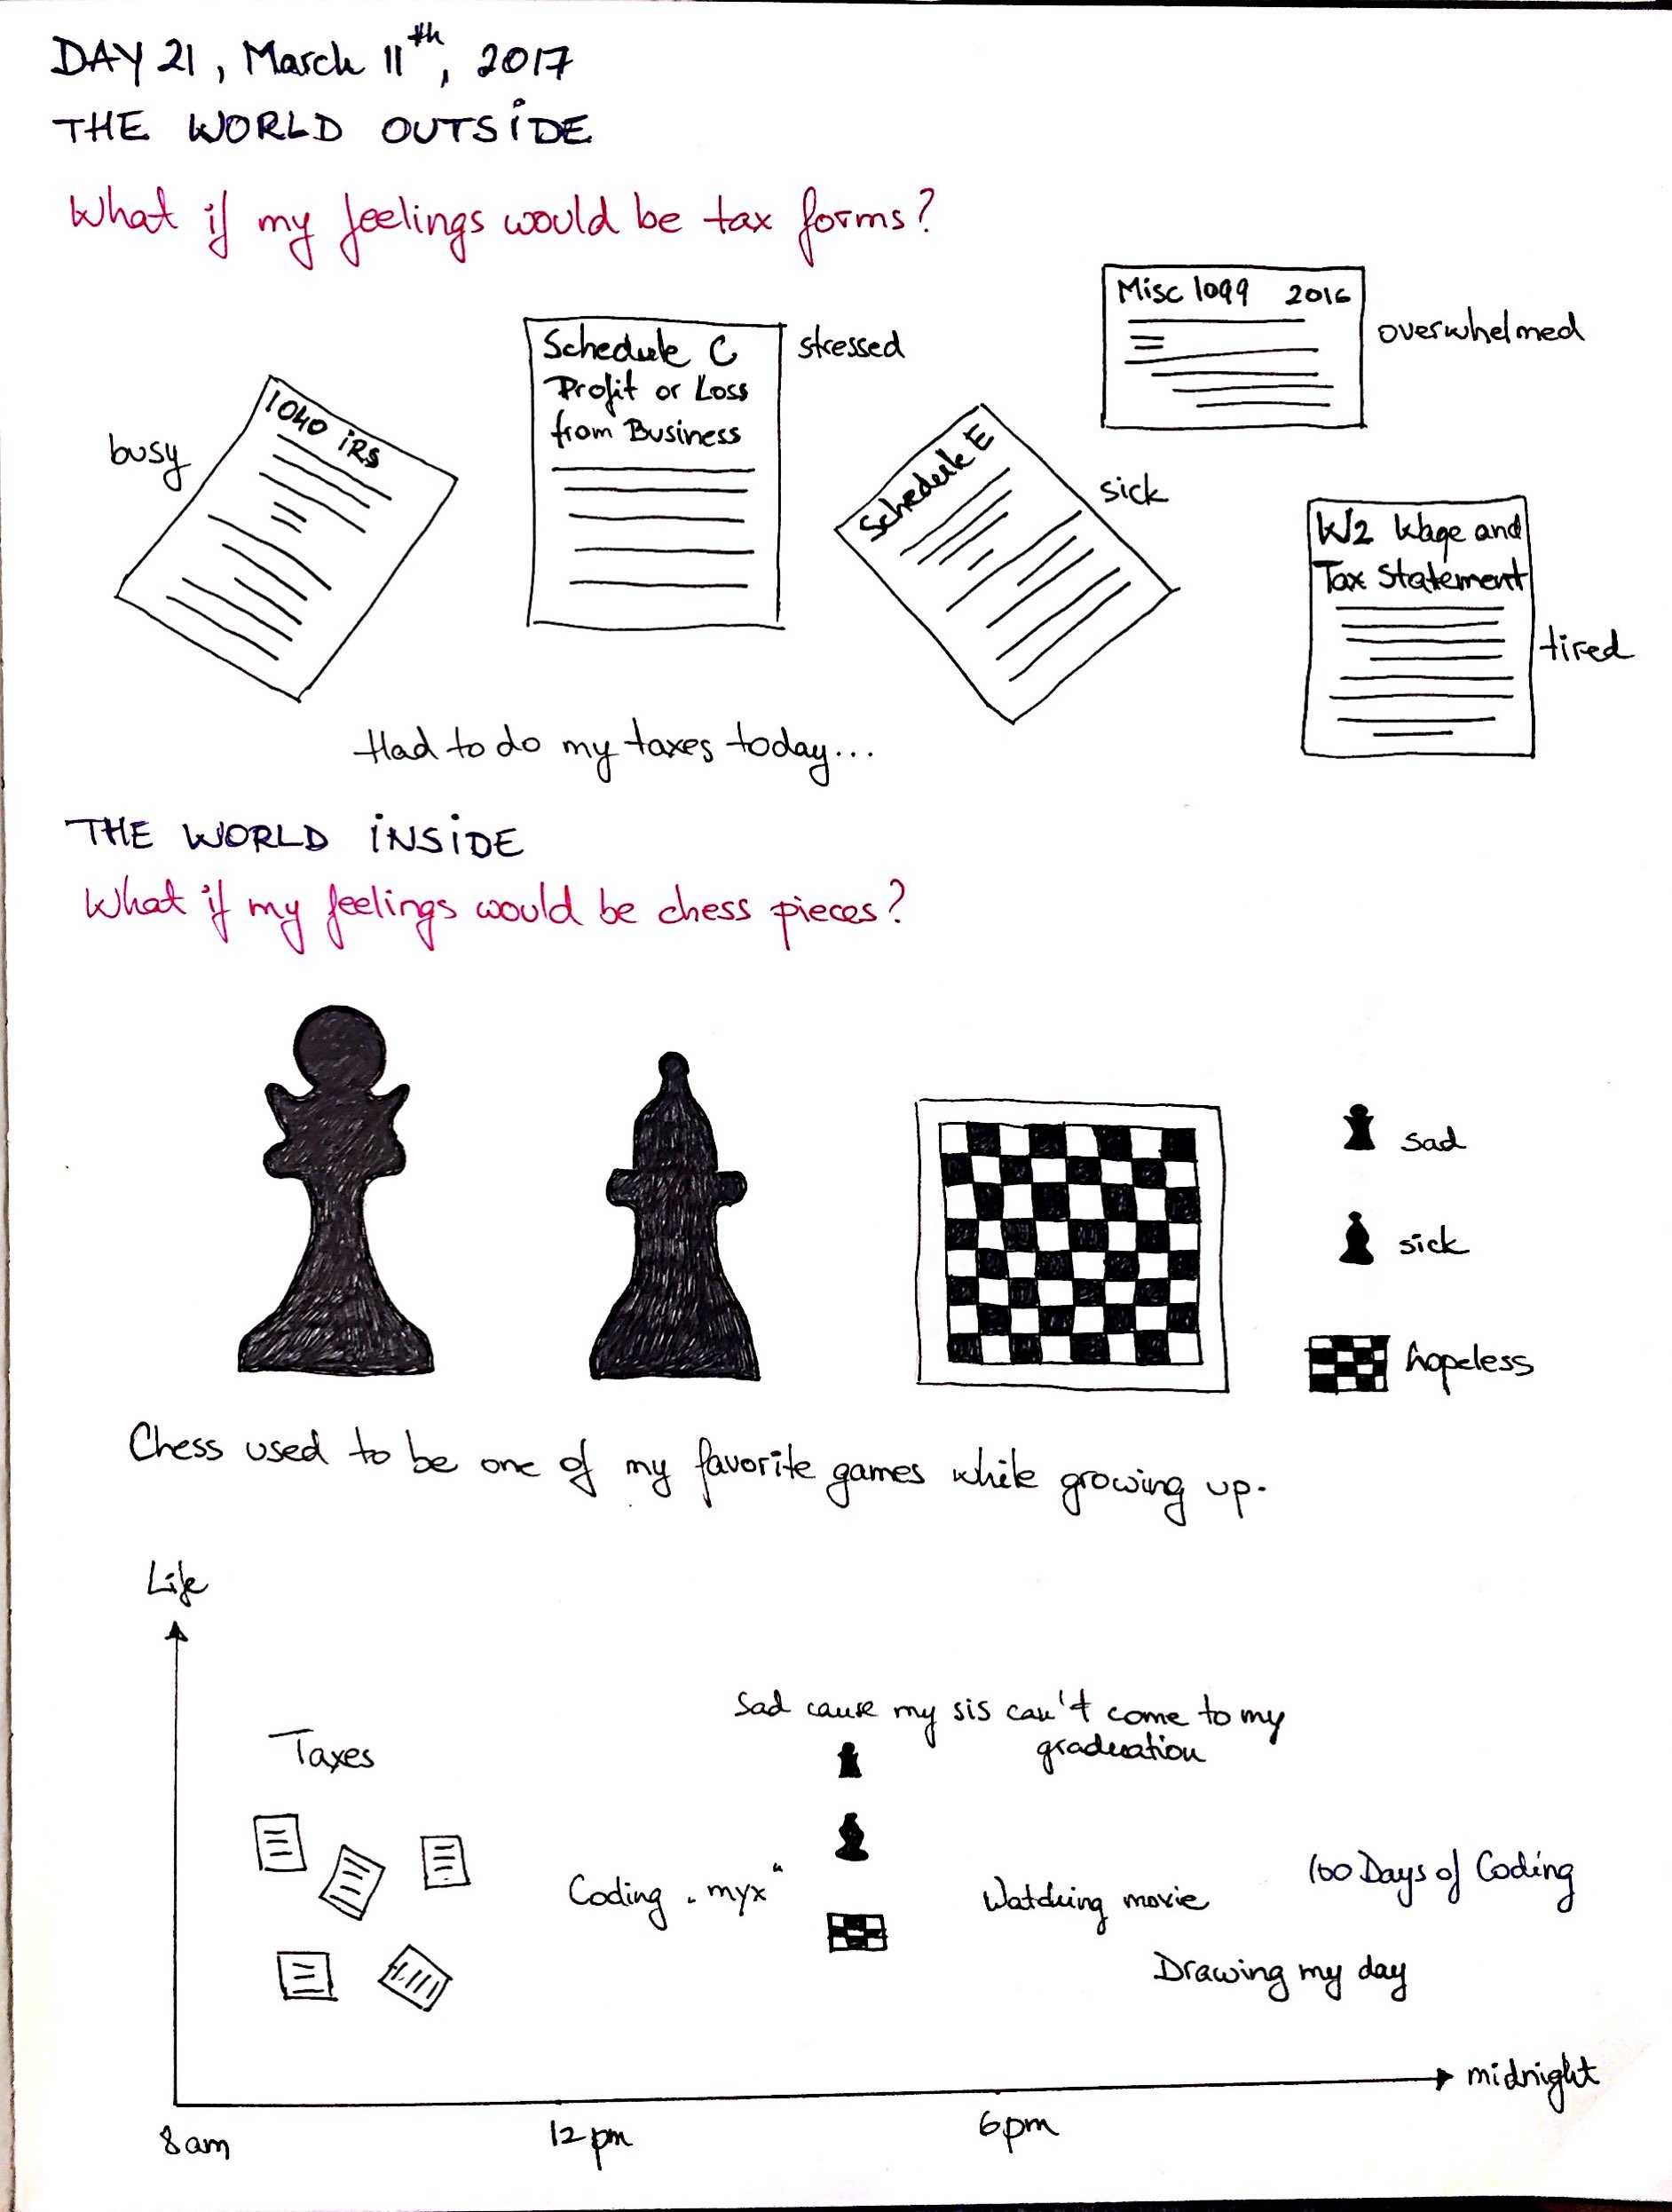 DAY 21, March 11th, 2017
THE WORLD OUTSIDE
What if my feelings would be tax forms?
busy
1040 IRS
Schedule C
Profit or Loss
from Business
stressed
Schedule E
sick
Misc 1099 2016
overwhelmed
W2 Wage and
Tax Statement
tired
Had to do my taxes today...
THE WORLD INSIDE
What if my feelings would be chess pieces?
sad
sick
hopeless
Chess used to be one of my favorite games while growing up.
Life
Sad cause my sis can't come to my
graduation
Taxes
Coding „myx“
Watching movie
100 Days of Coding
Drawing my day
8am
12pm
6pm
midnight